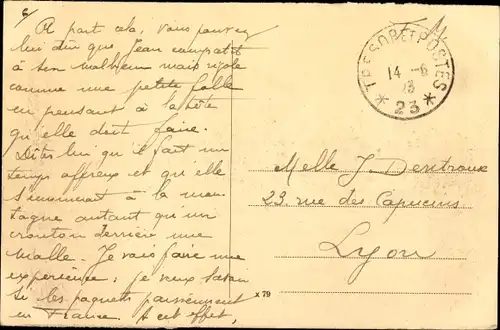 6
A part cela, vous pouvez
lui dire que Jean compatit
à son malheur mais rigole
comme une petite folle
en pensant à la tête
qu'elle doit faire.
Dites lui qu'il fait un
temps affreux et qu'elle
s'ennuierait à la mon-
tagne autant qu'un
crouton derrière une
malle. Je vais faire une
expérience : je veux savoir
si les paquets parviennent
en France. A cet effet,
TRESOR ET POSTES
14 -6
23
* 23 *
Melle J. Dentroux
23 rue des Capucins
Lyon
x 79